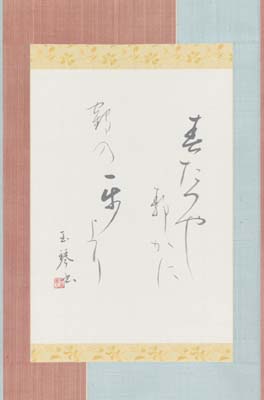 春たつや
静かに
鶴の
一歩より
玉琴書